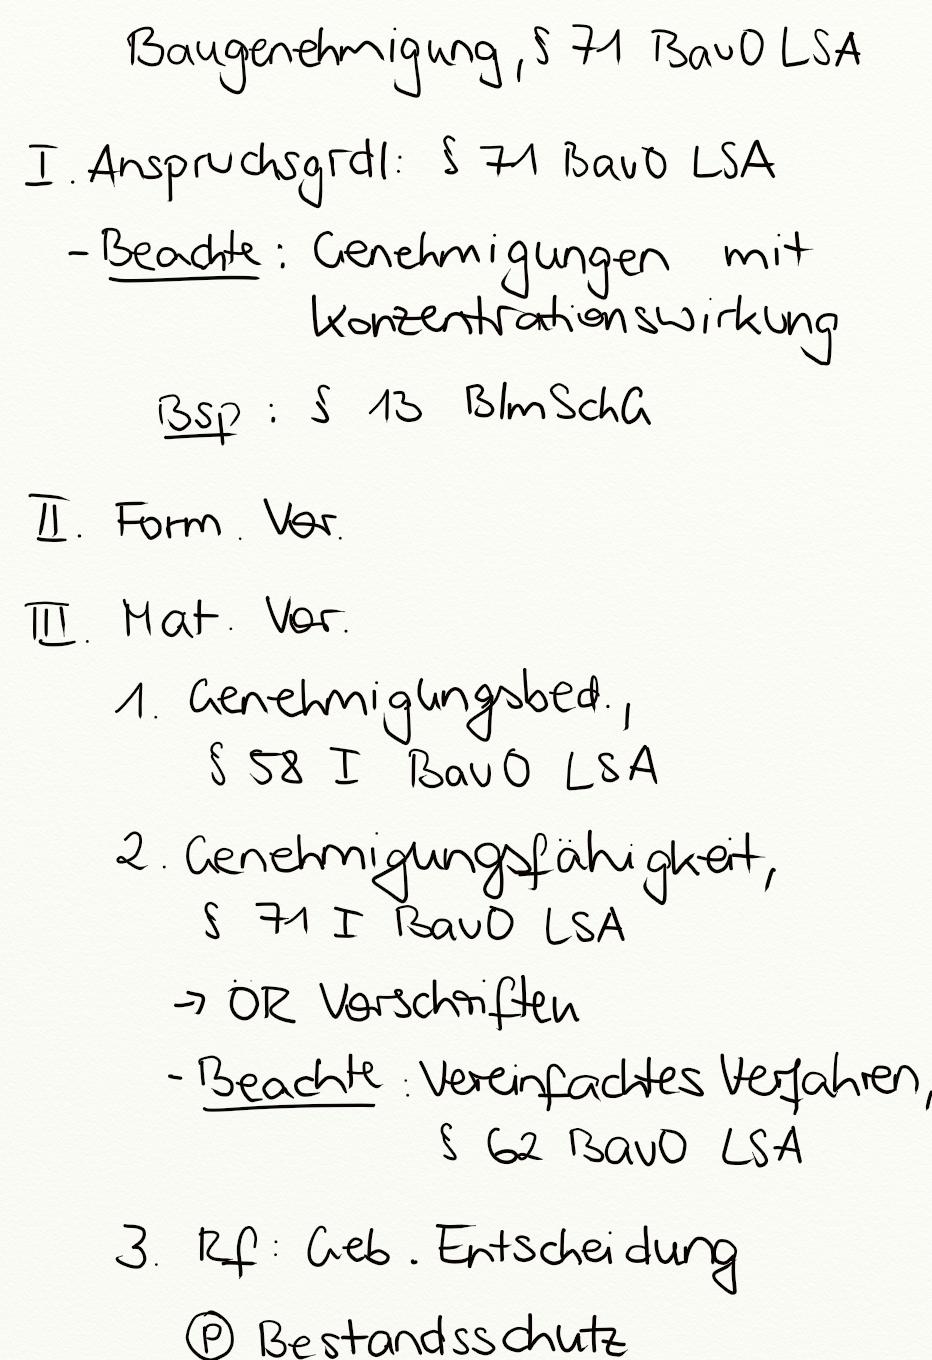 Baugenehmigung, § 71 BauO LSA
I. Anspruchsgrdl: § 71 BauO LSA
- Beachte: Genehmigungen mit
Konzentrationswirkung
Bsp: § 13 BImSchG
II. Form. Vor.
III. Mat. Vor.
1. Genehmigungsbed.,
§ 58 I BauO LSA
2. Genehmigungsfähigkeit,
§ 71 I BauO LSA
→ ÖR Vorschriften
- Beachte: Vereinfachtes Verfahren,
§ 62 BauO LSA
3. Rf: Geb. Entscheidung
Ⓟ Bestandsschutz